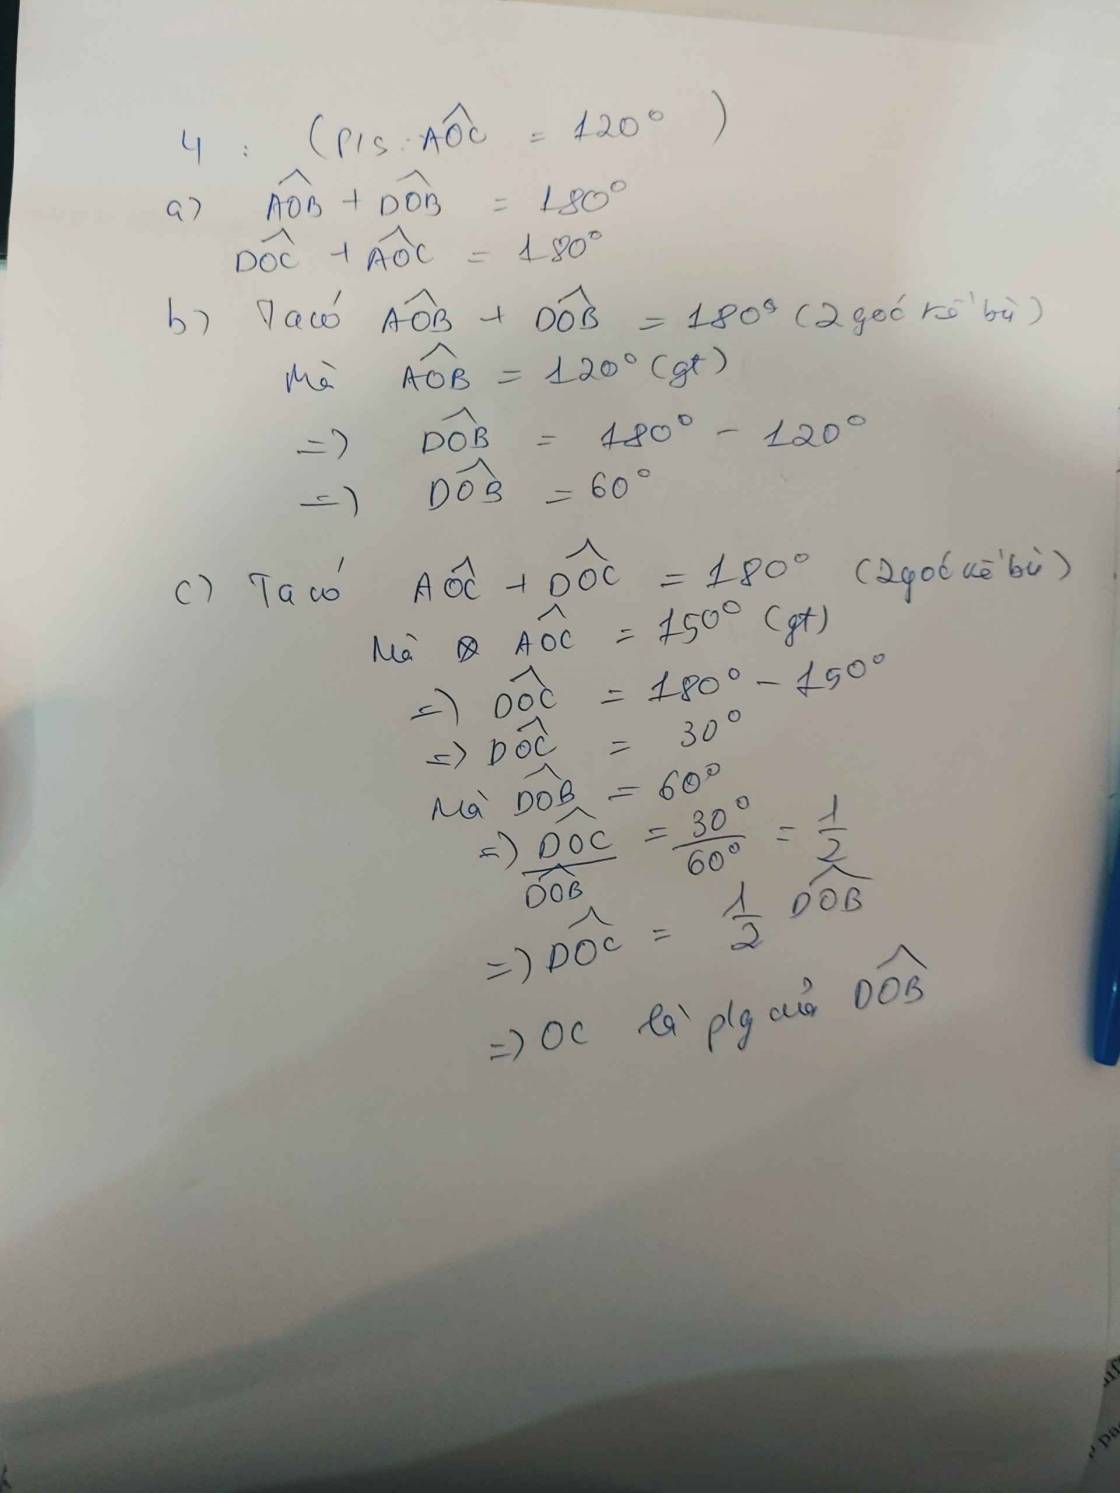 4 : (P/s: AOC = 120°)
a) AOB + DOB = 180°
DOC + AOC = 180°
b) Ta có AOB + DOB = 180° (2 góc kề bù)
Mà AOB = 120° (gt)
=) DOB = 180° - 120°
=) DOB = 60°
c) Ta có AOC + DOC = 180° (2 góc kề bù)
Mà AOC = 150° (gt)
=) DOC = 180° - 150°
=) DOC = 30°
Mà DOB = 60°
=) DOC/DOB = 30°/60° = 1/2
=) DOC = 1/2 DOB
=) OC là p/g của DOB